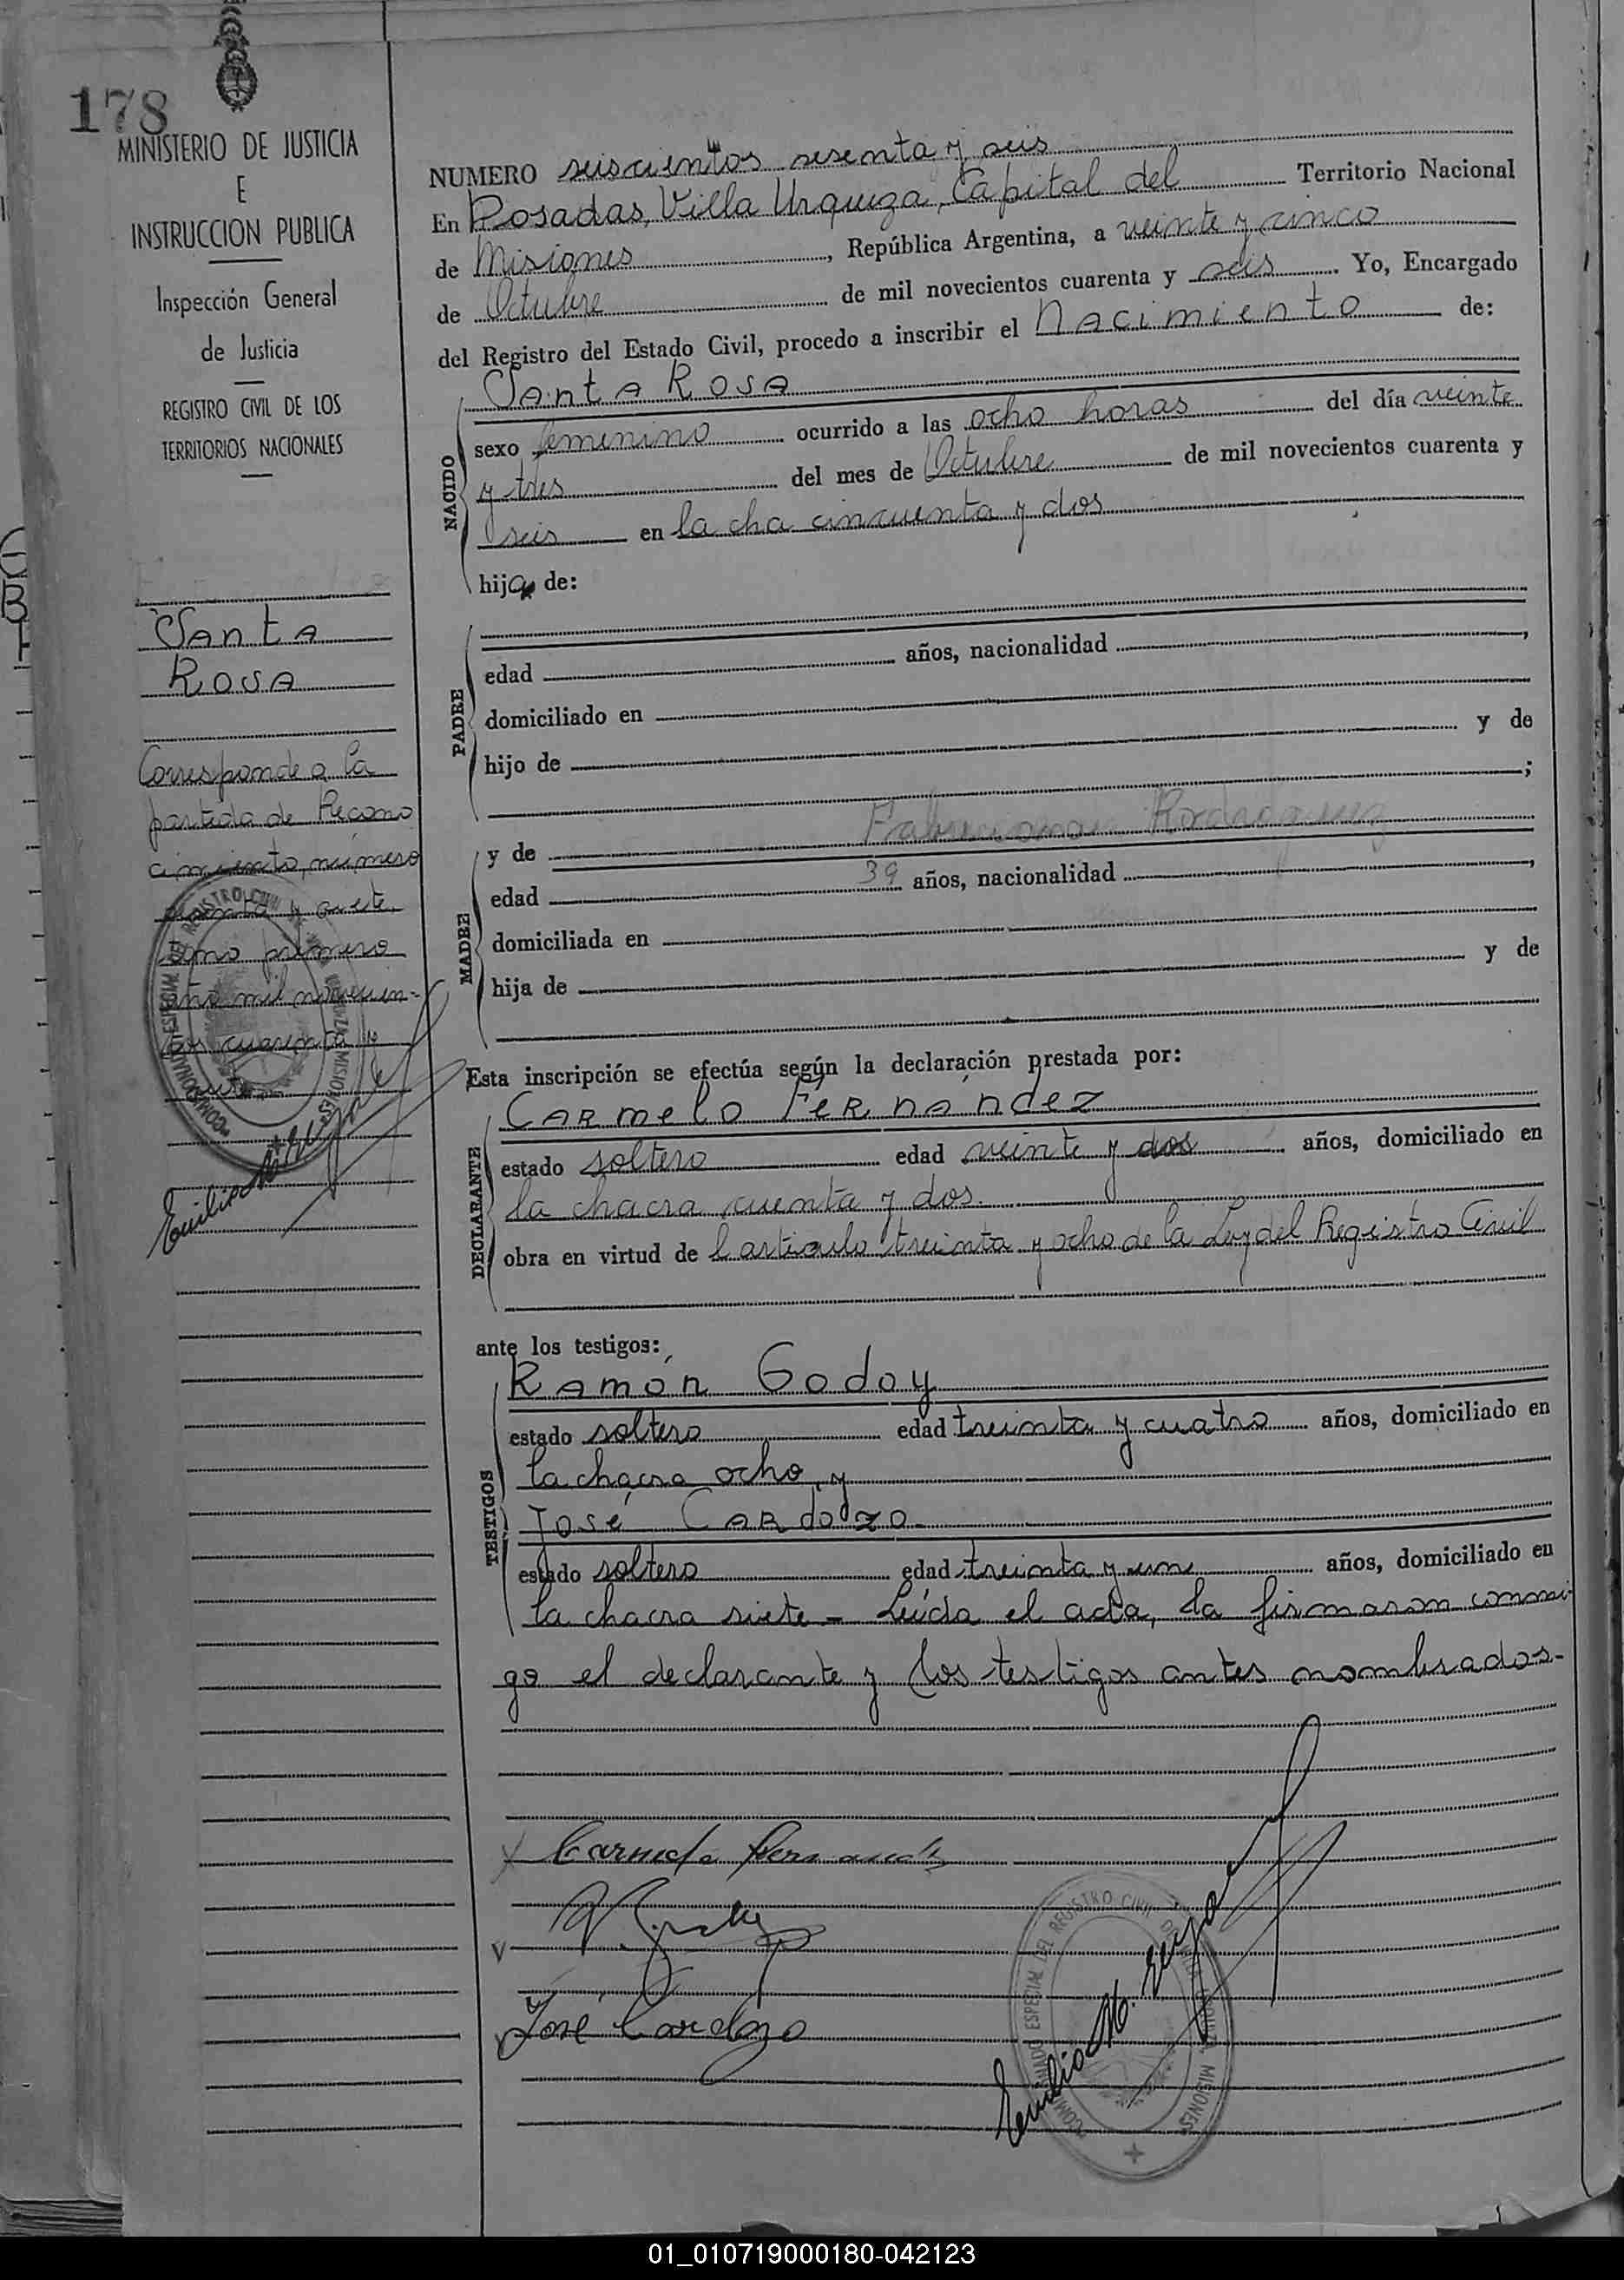 178
MINISTERIO DE JUSTICIA
E
INSTRUCCION PUBLICA
Inspección General
de Justicia
REGISTRO CIVIL DE LOS
TERRITORIOS NACIONALES
Santa
Rosa
Corresponde a la
partida de Recono
cimiento, número
y siete,
tomo primero
año mil novecien-
tos cuarenta y
NUMERO seiscientos sesenta y seis
En Posadas, Villa Urquiza, Capital del Territorio Nacional
de Misiones, República Argentina, a veinte y cinco
de Octubre de mil novecientos cuarenta y seis. Yo, Encargado
del Registro del Estado Civil, procedo a inscribir el Nacimiento de:
NACIDO
Santa Rosa
sexo femenino ocurrido a las ocho horas del día veinte
y tres del mes de Octubre de mil novecientos cuarenta y
seis en la cha cincuenta y dos
hija de:
PADRE
edad años, nacionalidad ,
domiciliado en
hijo de y de
;
MADRE
y de Rodriguez
edad 39 años, nacionalidad ,
domiciliada en
hija de y de
Esta inscripción se efectúa según la declaración prestada por:
DECLARANTE
Carmelo Fernández
estado soltero edad veinte y dos años, domiciliado en
la chacra cuenta y dos.
obra en virtud de l artículo treinta y ocho de la Ley del Registro Civil
ante los testigos:
TESTIGOS
Ramón Godoy
estado soltero edad treinta y cuatro años, domiciliado en
la chacra ocho, y
José Cardozo
estado soltero edad treinta y un años, domiciliado en
la chacra siete - Leída el acta, la firmaron conmi-
go el declarante y los testigos antes nombrados.-
Carmelo Fernandez
José Cardozo
Emilio M.
01_010719000180-042123